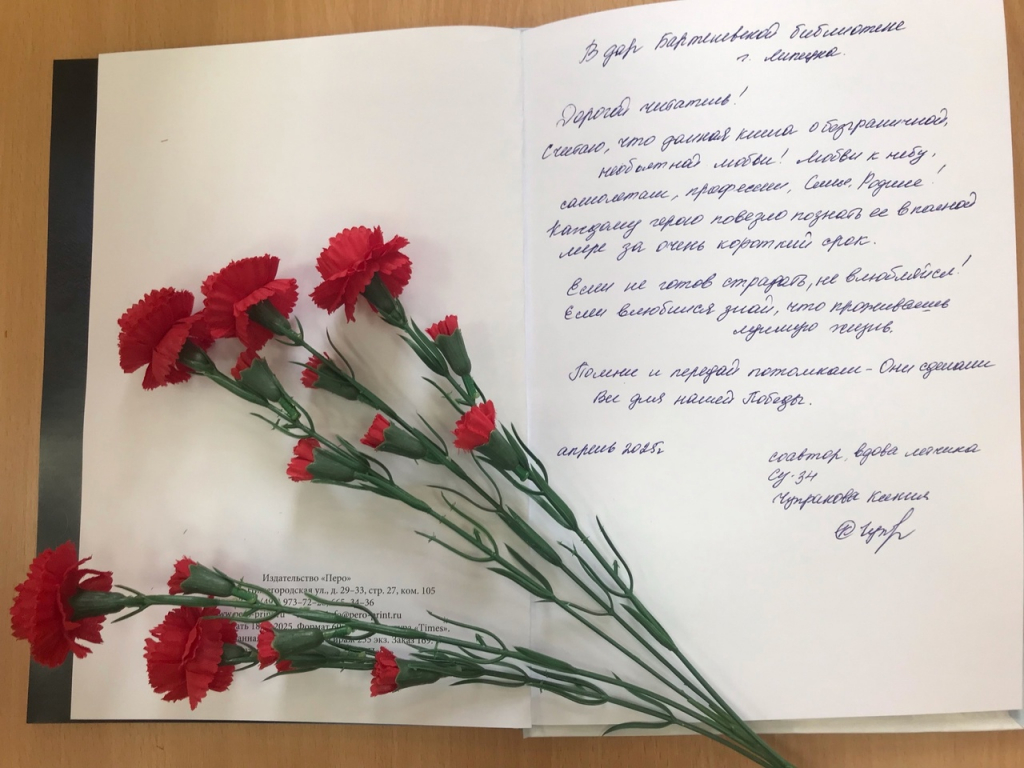 В дар Бартеневской библиотеке
г. Липецка.
Дорогой читатель!
Считаю, что данная книга о безграничной,
необъятной любви! Любви к небу,
самолетам, профессии, Семье, Родине!
Каждому герою повезло познать ее в полной
мере за очень короткий срок.
Если не готов страдать, не влюбляйся!
Если влюбишься знай, что проживаешь
лучшую жизнь.
Помни и передай потомкам - Они сделали
Все для нашей Победы.
апрель 2025г
соавтор, вдова летчика
Су-34
Чупракова Ксения
Издательство «Перо»
ул., д. 29–33, стр. 27, ком. 105
973–72–
34–36
2025. Формат
«Times».
экз. Заказ 189.